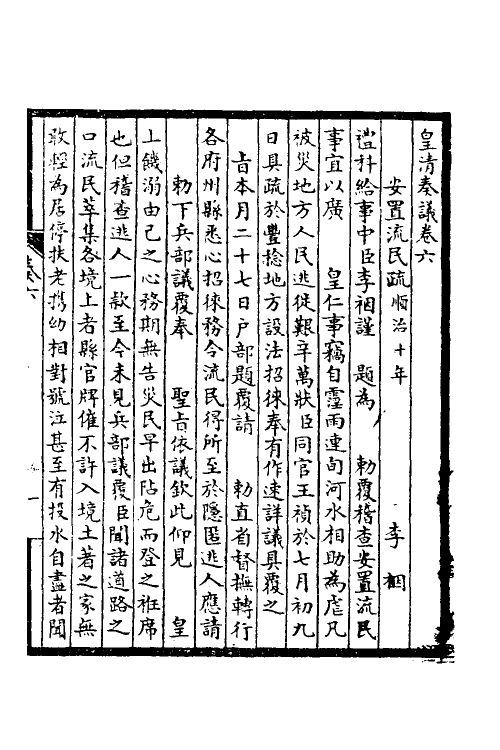 皇清奏議卷六
安置流民疏順治十年 李裀
禮科給事中臣李裀謹 題為 勅覆稽查安置流民
事宜以廣 皇仁事竊自霪雨連旬河水相助為虐凡
被災地方人民逃徙艱辛萬狀臣同官王禎於七月初九
日具疏於豐稔地方設法招徠奉有作速詳議具覆之
旨本月二十七日戶部題覆請 勅直省督撫轉行
各府州縣悉心招徠務令流民得所至於隱匿逃人應請
勅下兵部議覆奉 聖旨依議欽此仰見 皇
上饑溺由己之心務期無告災民早出阽危而登之袵席
也但稽查逃人一款至今未見兵部議覆臣聞諸道路之
口流民萃集各境上者縣官牌催不許入境土著之家無
敢輕為居停扶老攜幼相對號泣甚至有投水自盡者聞
卷六
一